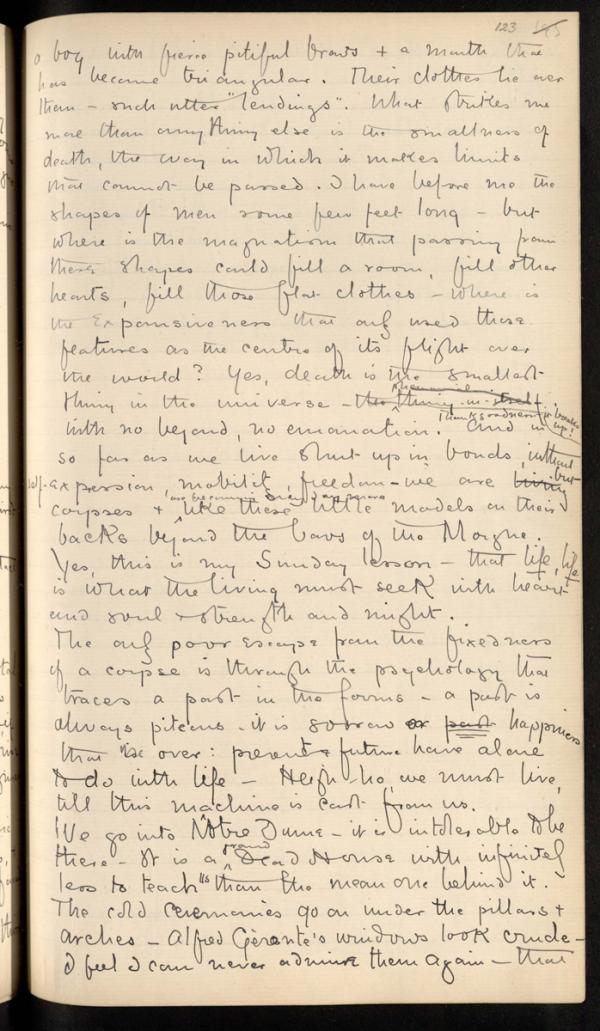 123 145
a boy with fierce pitiful brows + a mouth that
has become triangular. Their clothes lie over
them – such utter "lendings". What strikes me
more than anything else is the smallness of
death, the way in which it makes limits
that cannot be passed. I have before me the
shapes of men some few feet long – but
where is the magnetism that passing from
these shapes could fill a room, fill other
hearts, fill those flat clothes – where is
the expansiveness that only used those
features as the centre of its flight over
the world? Yes, death is the smallest
thing in the universe – the thing-in-itself.
with no beyond, no emanation. And in
so far as we live shut up in bonds, without
self-expression, mobility, freedom – we are living but
corpses + like these little models on their
backs beyond the bars of the Morgue.
Yes, this is my Sunday lesson – that life, life
is what the living must seek with heart
and soul + strength and might.
The only poor escape from the fixedness
of a corpse is through the psychology that
traces a past in the forms – a past is
always piteous – it is sorrow or past happiness
that is over: present + future have alone
to do with life – Heigh-ho, we must live,
till this machine is cast from us.
We go into Nôtre Dame – it is intolerable to be
there – It is a grand Dead House with infinitely
less to teach us than the mean one behind it.
The cold ceremonies go on under the pillars +
arches – Alfred Gérente's windows look crude –
I feel I can never admire them again – that